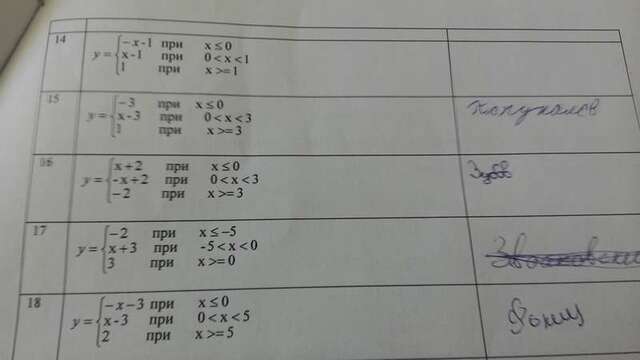 14
−x-1 при x ≤ 0
y = { x-1 при 0 < x < 1
1 при x >= 1
15
−3 при x ≤ 0
y = { x-3 при 0 < x < 3
1 при x >= 3
16
x+2 при x ≤ 0
y = { -x+2 при 0 < x < 3
−2 при x >= 3
Зубов
17
−2 при x ≤ −5
y = { x+3 при -5 < x < 0
3 при x >= 0
18
−x−3 при x ≤ 0
y = { x-3 при 0 < x < 5
2 при x >= 5